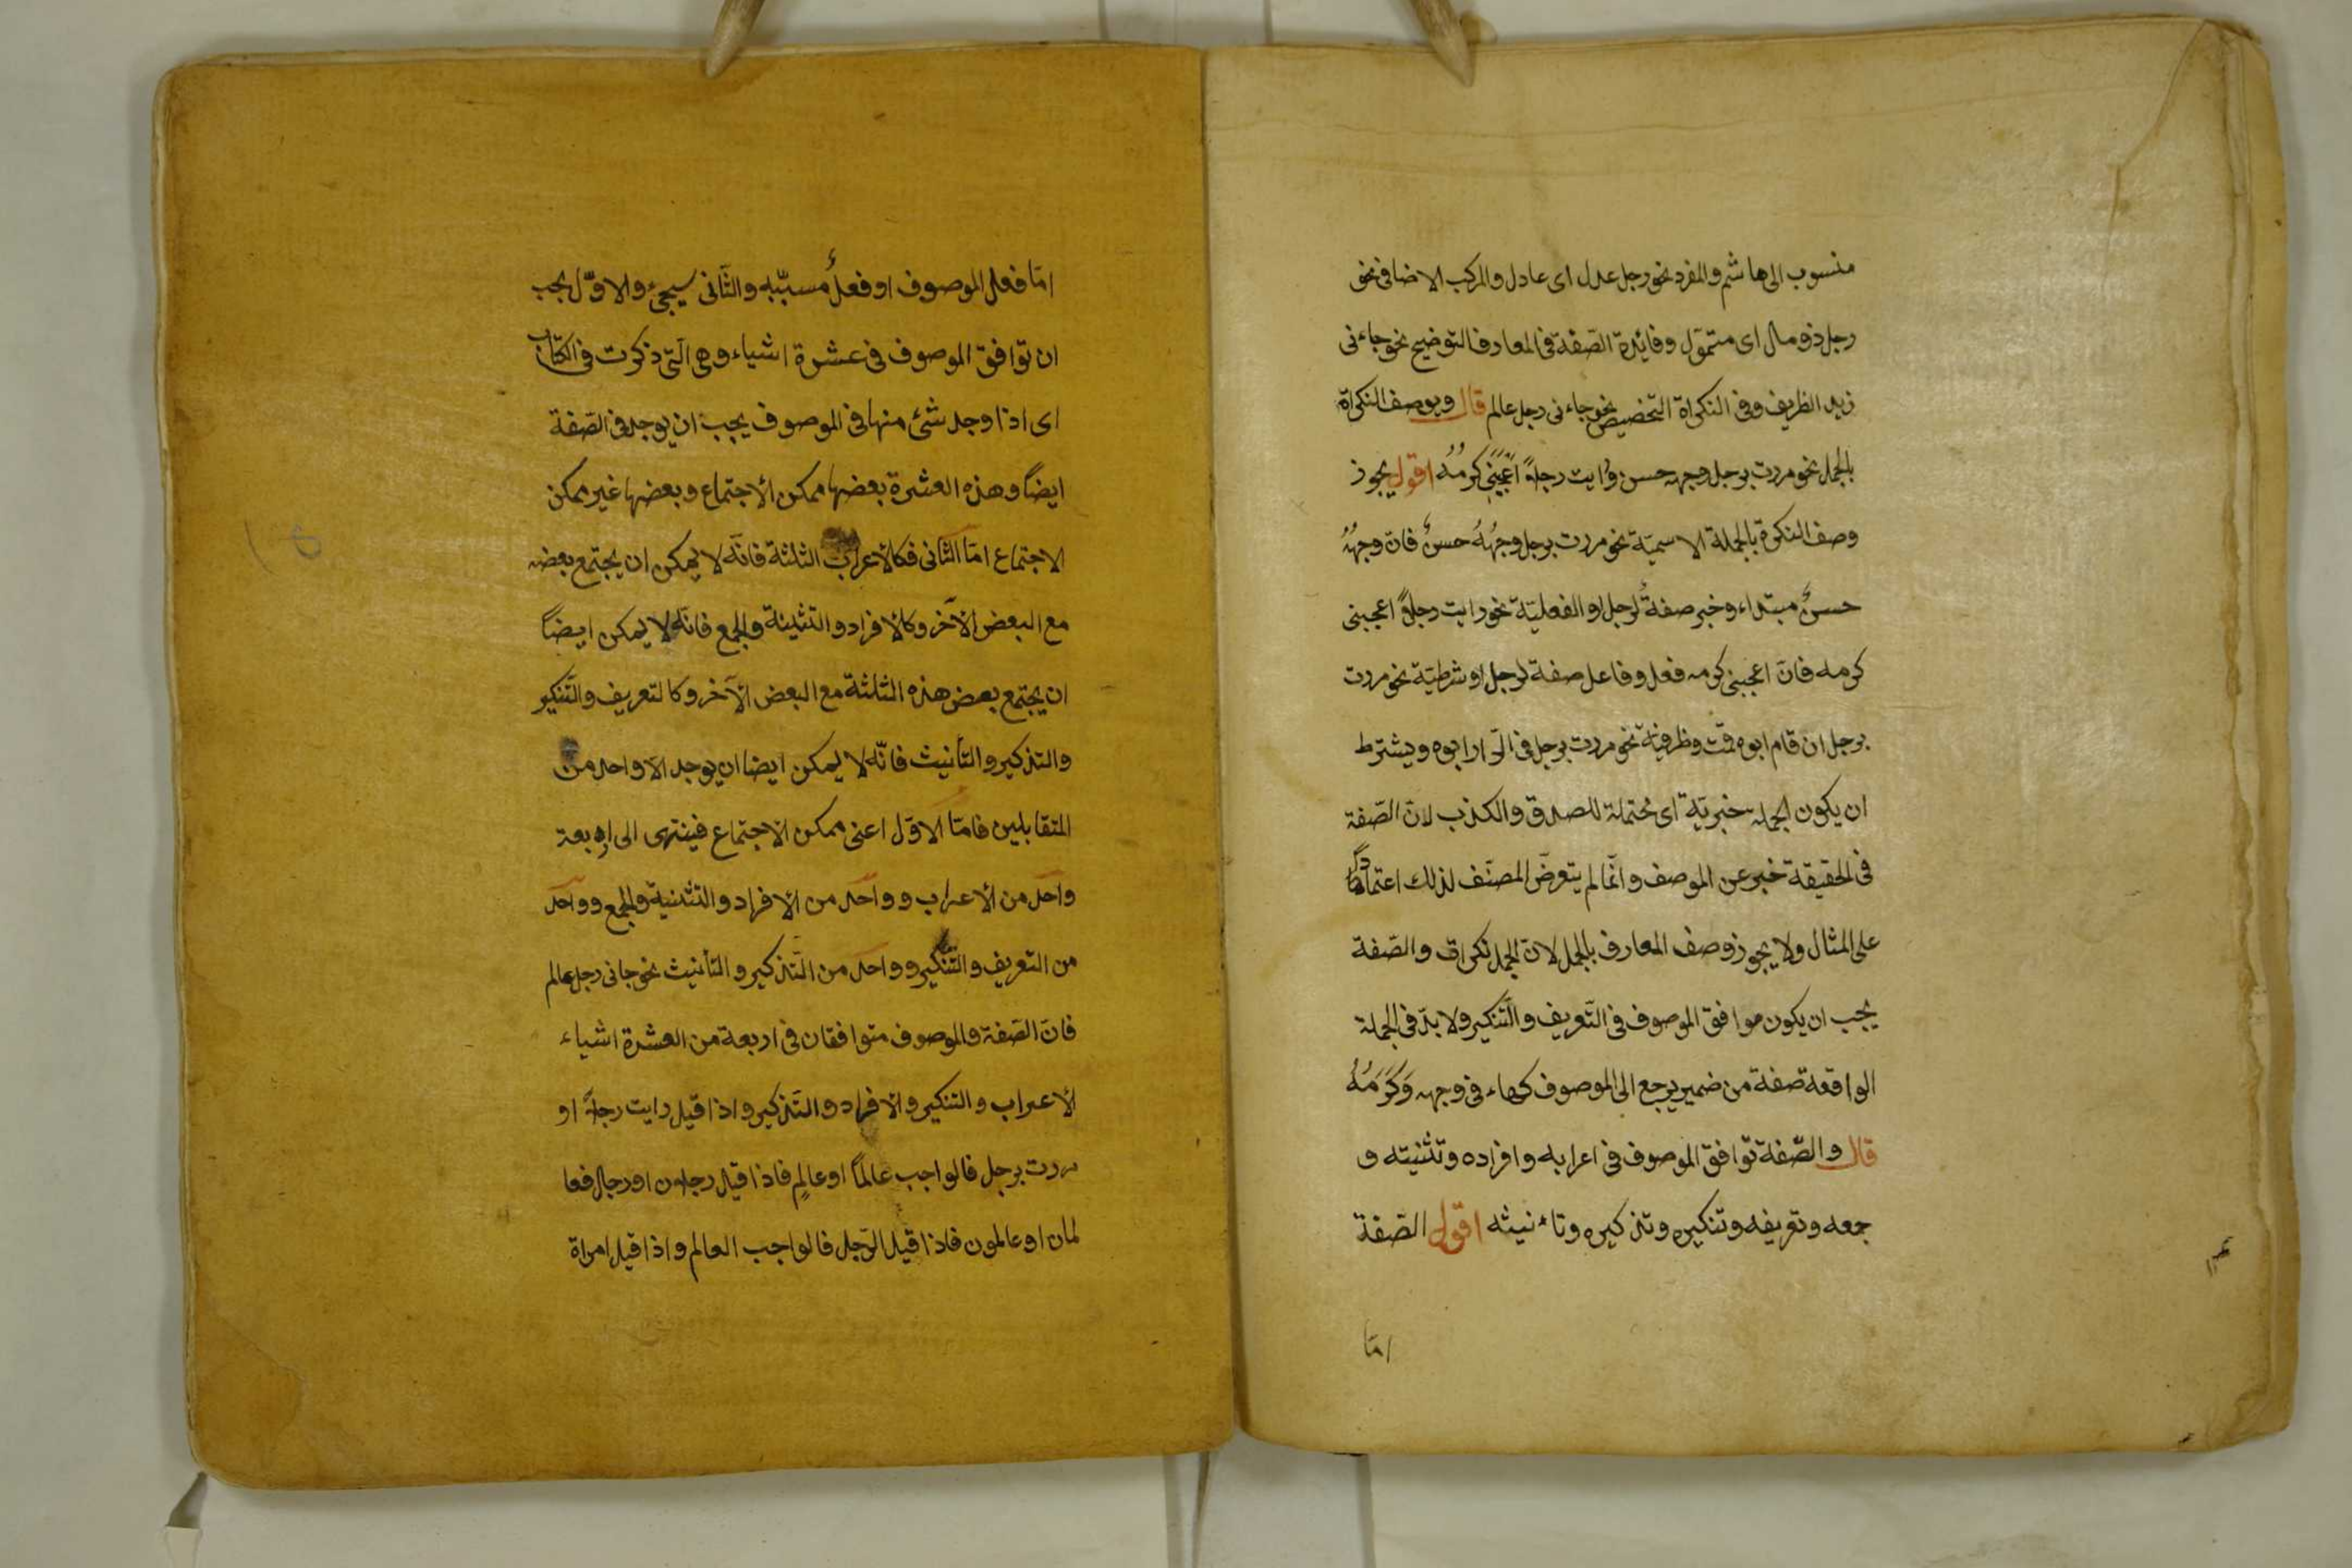 منسوب الى هاشم والمفرد نحو رجل عدل اى عادل والمركب الاضافى نحو
رجل ذو مال اى متموّل وفائدة الصّفة فى المعارف التوضيح نحو جاءنى
زيد الظريف وفى النكراة التخصيص نحو جاءنى رجل عالم قال ويوصف النكراة
بالجمل نحو مررت برجل وجهه حسن ورايت رجلاً اعجبنى كرمُه اقول يجوز
وصف النكرة بالجملة الاسميّة نحو مررت برجل وجهُهُ حسنٌ فانّ وجهُهُ
حسنٌ مبتداء وخبر صفةٌ لرجل او الفعليّة نحو رايت رجلاً اعجبنى
كرمه فانّ اعجبنى كرمه فعل وفاعل صفة لرجل او شرطيّة نحو مررت
برجل ان قام ابوه قمت وظرفيّة نحو مررت برجل فى الدّار ابوه ويشترط
ان يكون الجملة خبريّة اى محتملة للصدق والكذب لانّ الصّفة
فى الحقيقة خبر عن الموصف وانّما لم يتعرّض المصنّف لذلك اعتمادًا
على المثال ولا يجوز وصف المعارف بالجمل لانّ الجمل نكراة والصّفة
يجب ان يكون موافق الموصوف فى التّعريف والتّنكير ولا بدّ فى الجملة
الواقعة صفة من ضمير يرجع الى الموصوف كهاء فى وجهه وَكَرَمُهُ
قال والصّفة توافق الموصوف فى اعرابه وافراده وتثنيته و
جمعه وتعريفه وتنكيره وتذكيره وتاءنيثه اقول الصّفة
امّا
امّا فعل الموصوف او فعلُ مسبّبه والثّانى سيجىء والاوّل يجب
ان توافق الموصوف فى عشرة اشياء وهى الّتى ذكرت فى الكتاب
اى اذا وجد شئ منها فى الموصوف يجب ان يوجد فى الصّفة
ايضًا وهذه العشرة بعضها ممكن الاجتماع وبعضها غير ممكن
الاجتماع امّا الثّانى فكالاعراب الثلثة فانّه لا يمكن ان يجتمع بعضه
مع البعض الآخر وكالافراد والتثنية والجمع فانّه لا يمكن ايضًا
ان يجتمع بعض هذه الثلثة مع البعض الآخر وكالتعريف والتّنكير
والتذكير والتأنيث فانّه لا يمكن ايضا ان يوجد الا واحد من
المتقابلين فامّا الاوّل اعنى ممكن الاجتماع فينتهى الى اربعة
واحد من الاعراب وواحد من الافراد والتثنية والجمع وواحد
من التعريف والتّنكير وواحد من التّذكير والتأنيث نحو جانى رجل عالم
فانّ الصّفة والموصوف متوافقان فى اربعة من العشرة اشياء
الاعراب والتنكير والافراد والتّذكير واذا قيل رايت رجلاً او
مررت برجل فالواجب عالمًا او عالمٍ فاذا قيل رجلان او رجال فعا
لمان او عالمون فاذا قيل الرّجل فالواجب العالم واذا قيل امراة